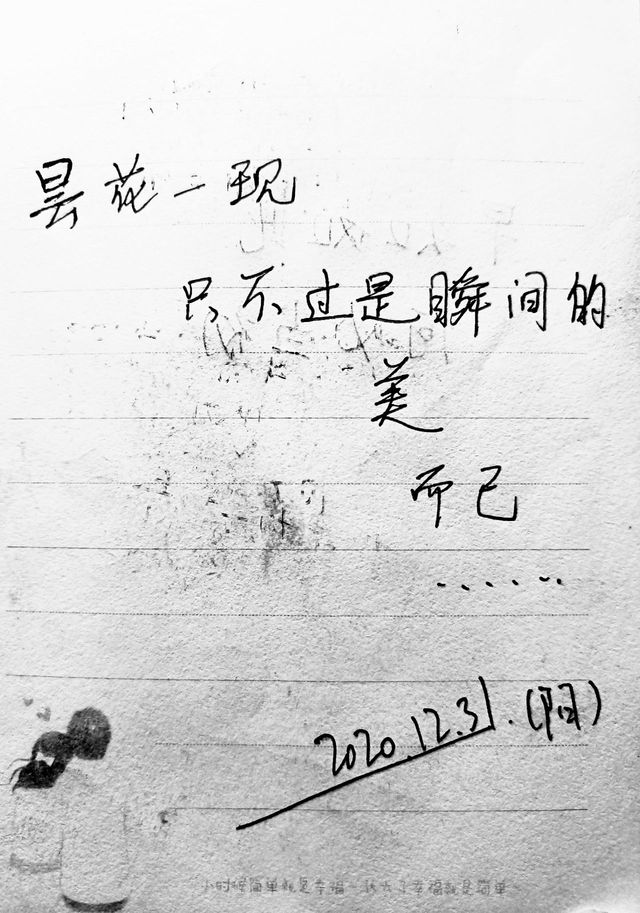 昙花一现
只不过是瞬间的
美
而已
......
2020.12.31.(阳)
小时候简单就是幸福 长大了幸福就是简单